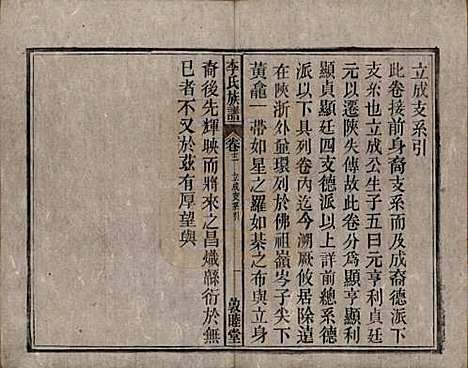 立成支系引
此卷接前身裔支系而立成裔德派下
支系也立成公生子五曰元亨利貞顯
元以遷陝失傳故此卷分爲顯亨顯利
顯貞顯廷四支德派以上詳前總系德
派以下具列卷內迄今溯厥攸居除遠
在陝浙外畫環列於佛祖嶺岑子尖下
黃龕一帶如星之羅如棊之布與立身
裔後先輝映而將來之昌熾緜衍於無
巳者不又於茲有厚望與
李氏族譜
卷三
立成支系引
一
敦睦堂